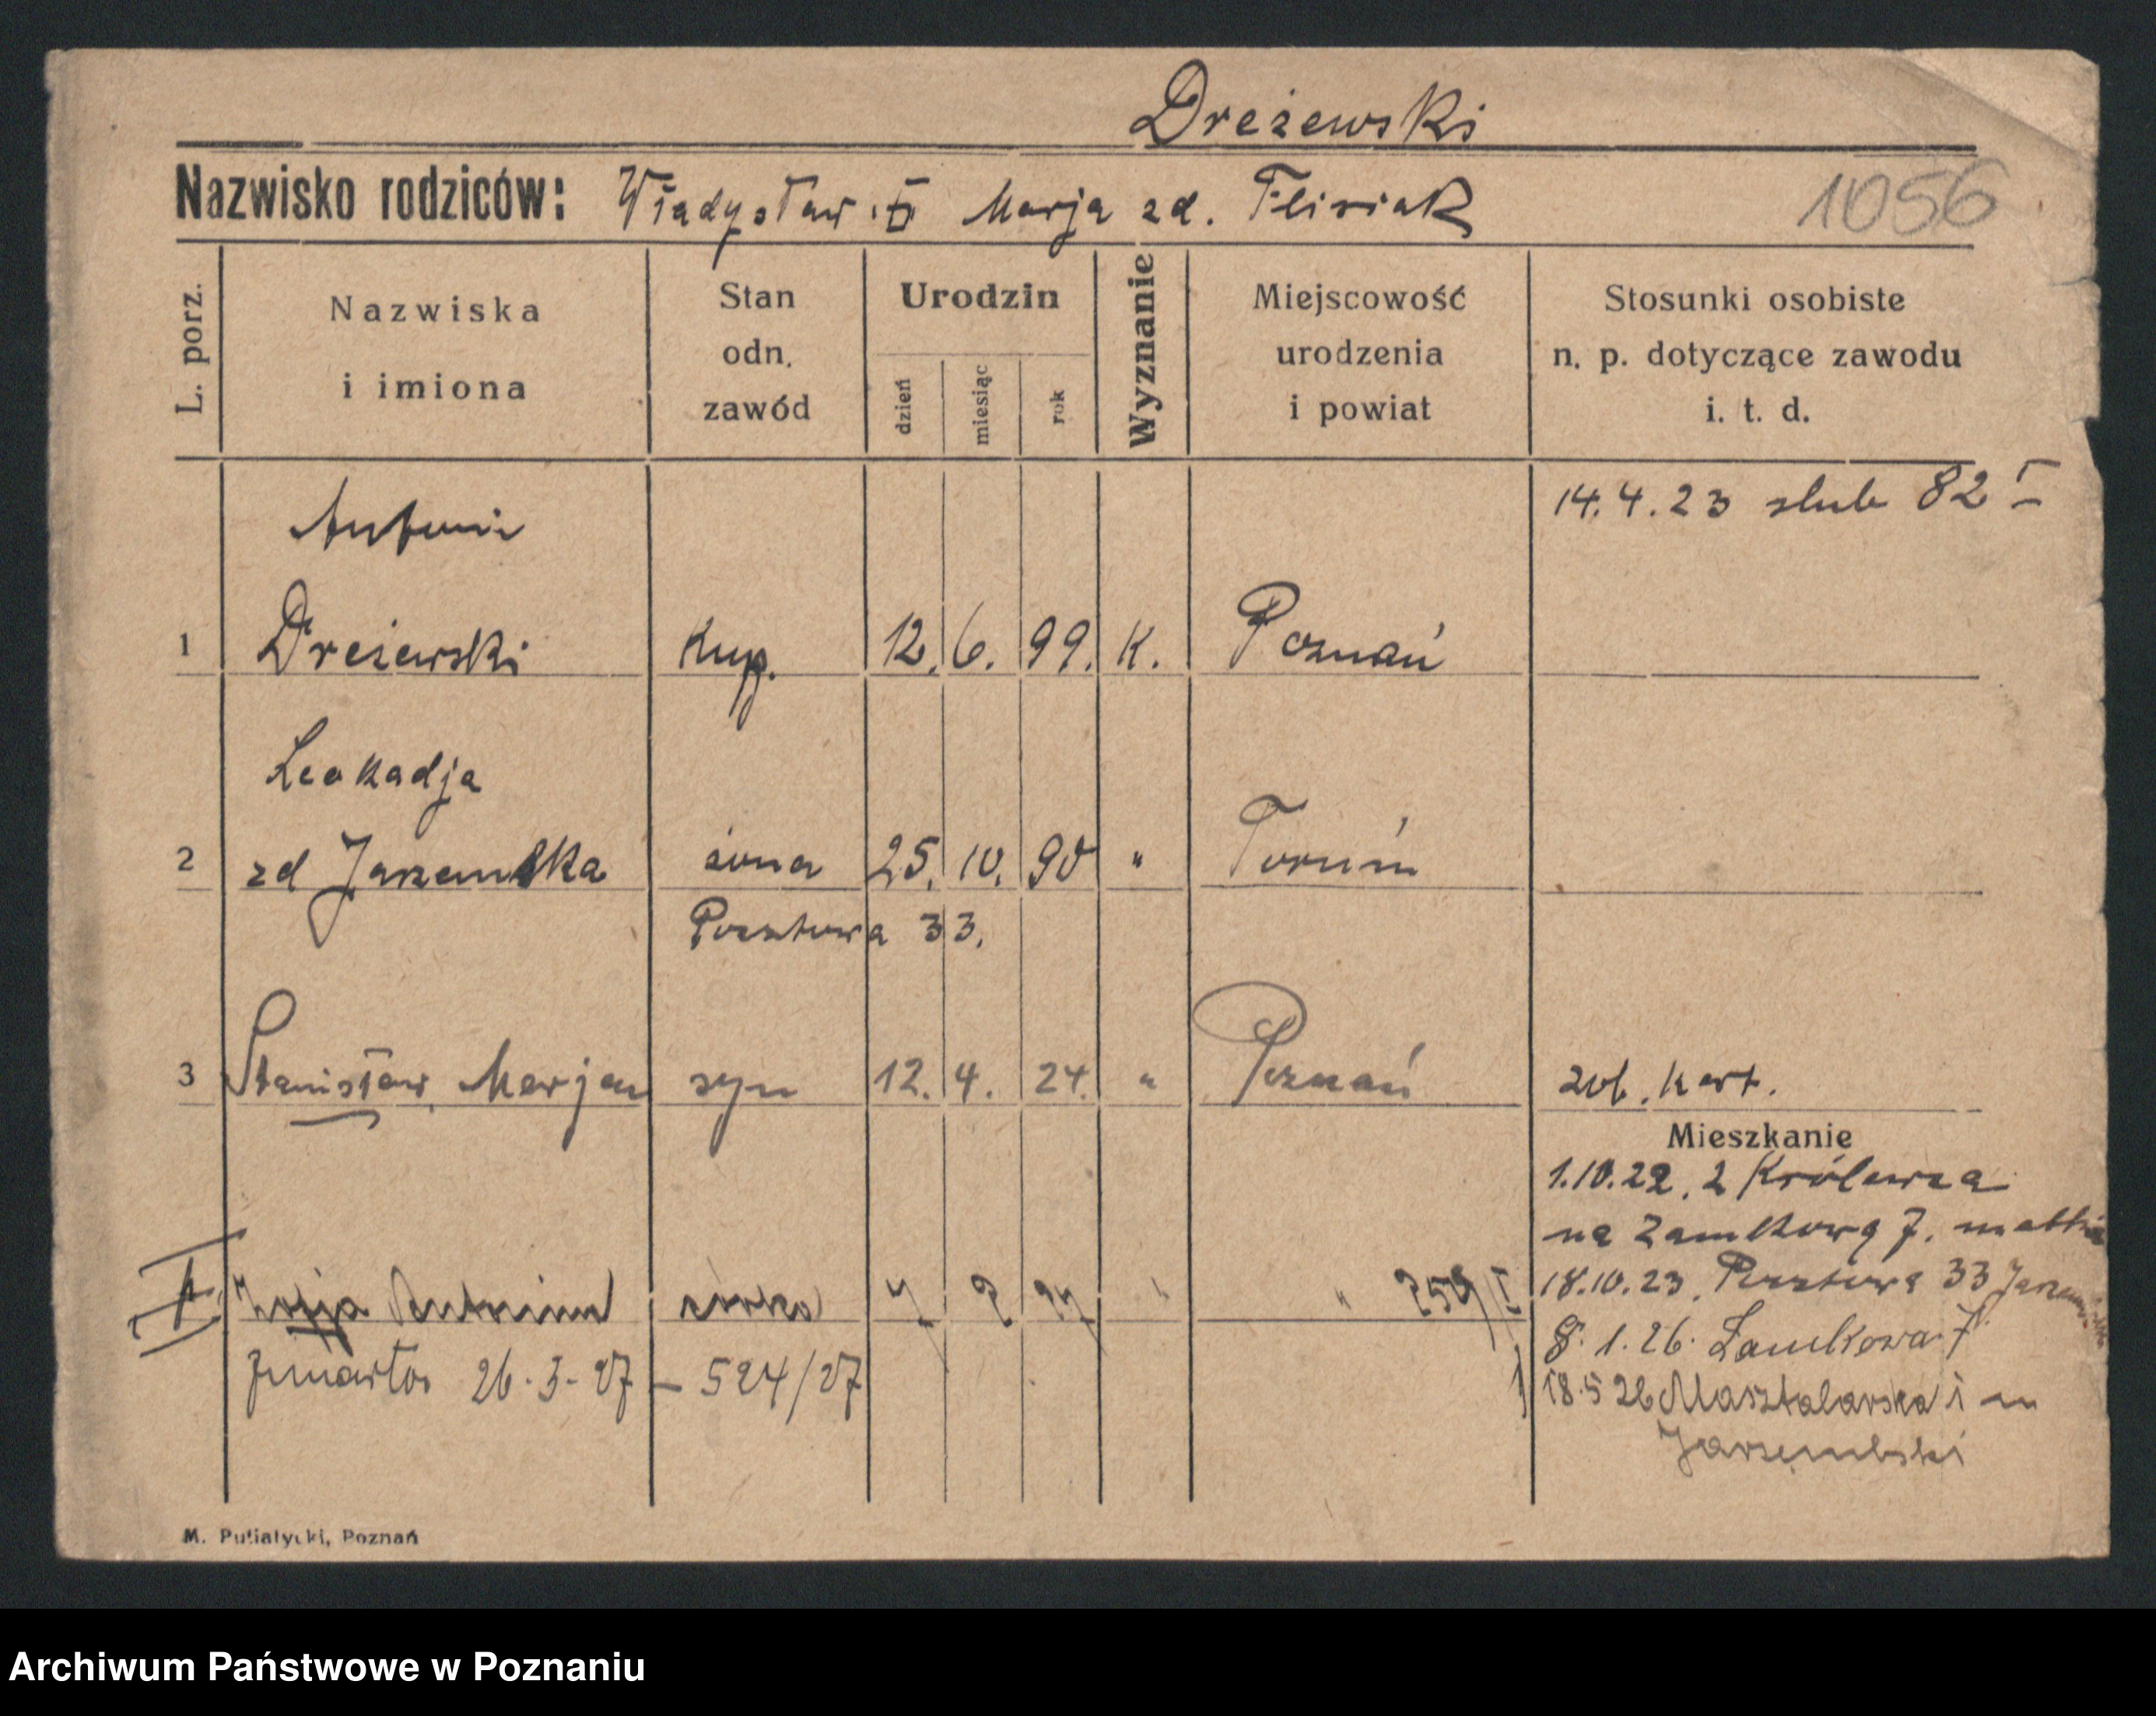 Dreżewski
Nazwisko rodziców: Władysław i Marja zd. Flisiak 1056
L. porz. Nazwiska i imiona Stan odn. zawód Urodzin dzień miesiąc rok Wyznanie Miejscowość urodzenia i powiat Stosunki osobiste n. p. dotyczące zawodu i. t. d.
14.4.23 slub 82 I
Antoni
1 Dreżewski Kup. 12. 6. 99. K. Poznań
Leokadja
2 zd Jarzembska żona 25. 10. 90 " Toruń
Pocztowa 33.
3 Stanisław, Marjan syn 12. 4. 24. " Poznań zob. kart.
Mieszkanie
1.10.22. 2 Królewska
na Zamkową 7. matka
18.10.23. Pocztowa 33
8.1.26. Zamkowa 7.
córka " 259/I
18.5 26 Masztalarska
zmarła 26.3-27 – 524/27
Jarzembski
M. Putiatycki, Poznań
Archiwum Państwowe w Poznaniu